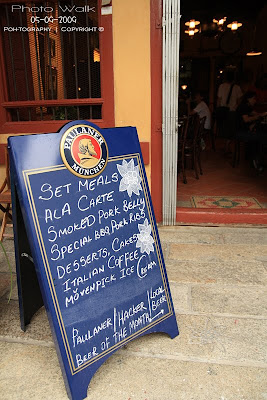 Photo Walk
05-09-2009
POH-TOGRAPHY | ©COPYRIGHT
PAULANER
MÜNCHEN
SET MEALS
ALA CARTE
SMOKED PORK BELLY
SPECIAL BBQ PORK RIBS
DESSERTS, CAKES
ITALIAN COFFEE
MÖVENPICK ICE CREAM
PAULANER/HACKER/LOCAL BEER/
BEER OF THE MONTH